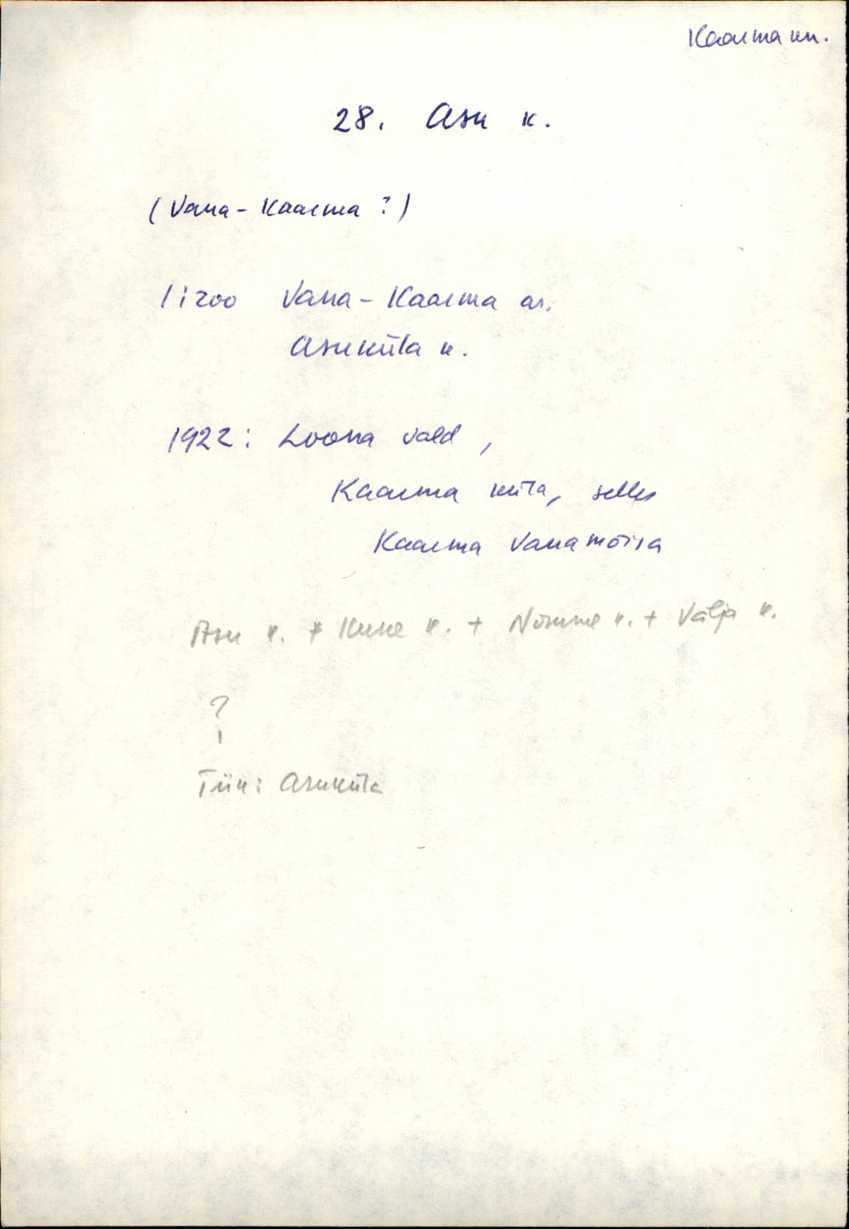 Kaarma kn.
28. Asu k.
(Vana-Kaarma ?)
1:200 Vana-Kaarma as.
Asuküla k.
1922: Loona vald,
Kaarma küla, selles
Kaarma Vanamõisa
Asu k. + Kuke k. + Nõmme k. + Välja k.
?
Tiik: Asuküla